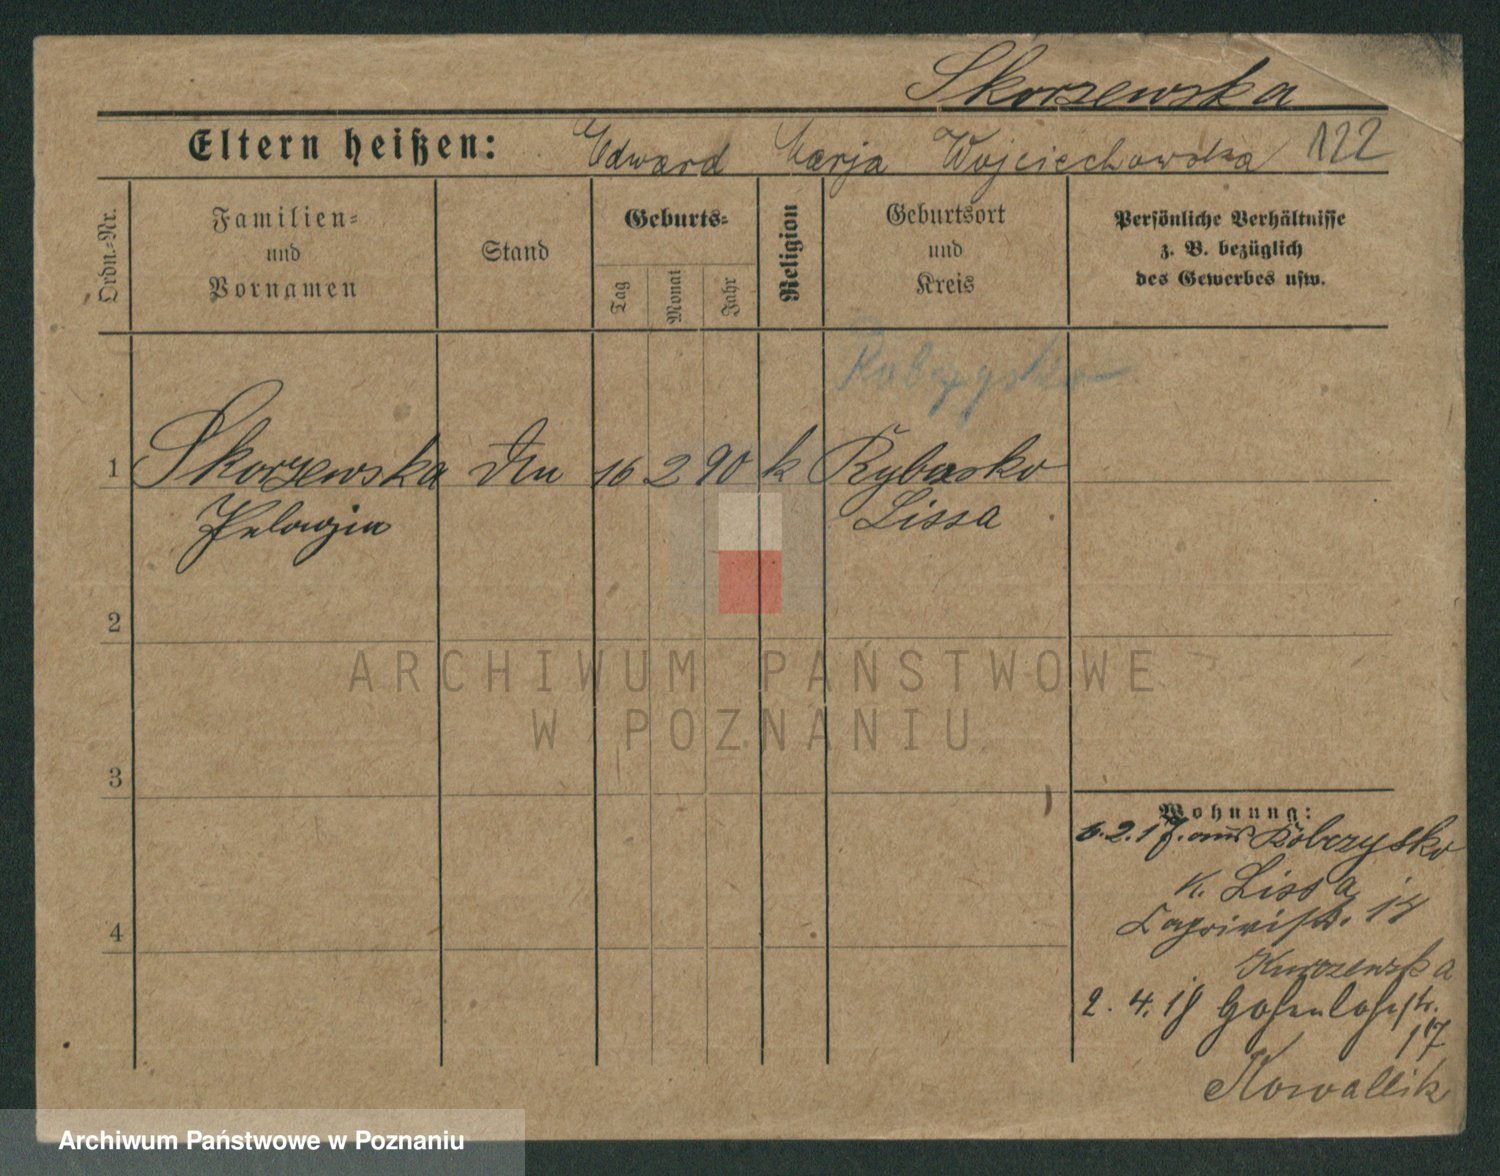 Skorzewska
Eltern heißen: Edward Marja Wojciechowska 122
Ordn.-Nr.
Familien-
und
Vornamen
Stand
Geburts-
Tag
Monat
Jahr
Religion
Geburtsort
und
Kreis
Persönliche Verhältnisse
z. B. bezüglich
des Gewerbes usw.
1 Skorzewska 16 2 90 k
Pelagia Lissa
2
ARCHIWUM PAŃSTWOWE
W POZNANIU
3
Wohnung:
6.2.17. aus Robczysko
K. Lissa
Caprivistr.
2.4.18
17
Kowallik
4
Archiwum Państwowe w Poznaniu